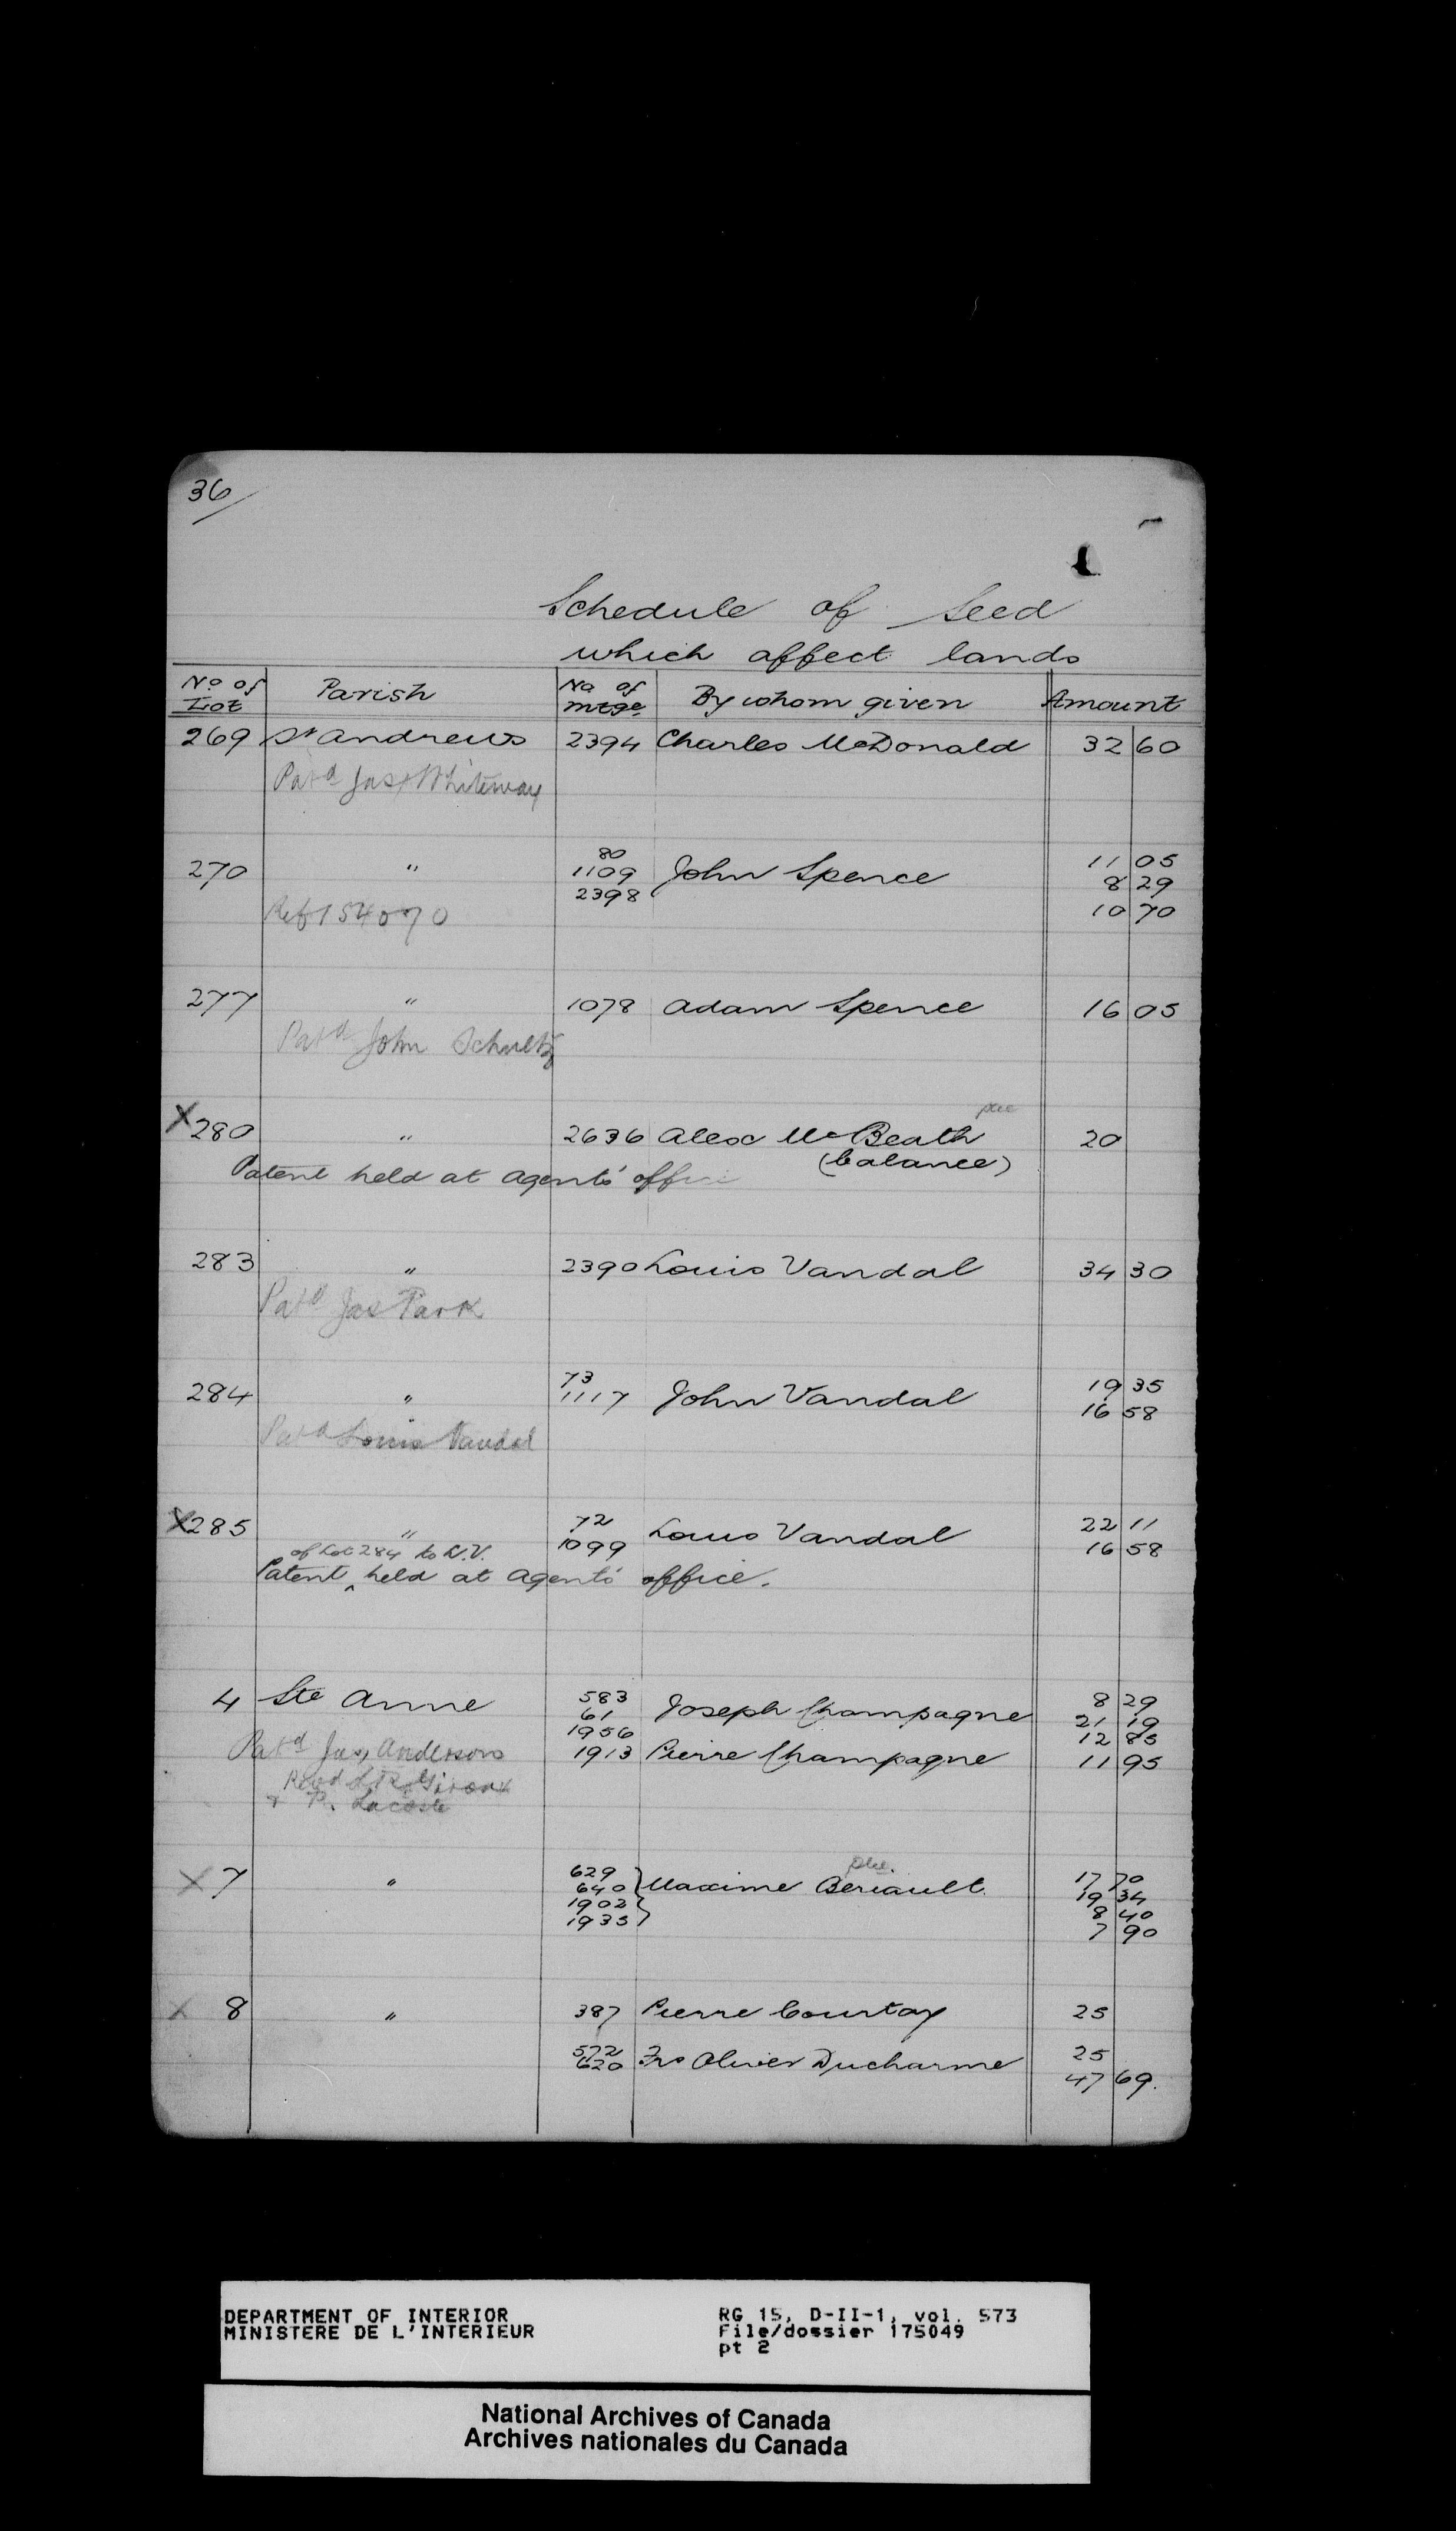 36/
Schedule of Seed
which affect lands
No of Lot Parish No of mtge. By whom given Amount
269 St Andrews 2394 Charles McDonald 32 60
Patd Jas Whiteway
270 " 80 John Spence 11 05
1109 8 29
2398 10 70
Ref 154070
277 " 1078 Adam Spence 16 05
Patd John Schultz
X 280 " 2636 Alex McBeath 20
(balance)
Patent held at Agents' office
283 " 2390 Louis Vandal 34 30
Patd Jas Park
284 " 73 John Vandal 19 35
1117 16 58
Patd Louis Vandal
X 285 " 72 Louis Vandal 22 11
1099 16 58
of Lot 284 to L.V.
Patent ^ held at Agents' office.
4 Ste Anne 583 Joseph Champagne 8 29
61 21 19
1956 12 85
1913 Pierre Champagne 11 95
Patd Jas, Anderson
Giroux
& P. Lacoste
X 7 " 629 Maxime Beriault 17 70
640 19 34
1902 8 40
1935 7 90
X 8 " 387 Pierre Courtoy 25
572 Frs Olivier Ducharme 25
620 47 69.
DEPARTMENT OF INTERIOR
MINISTERE DE L'INTERIEUR
RG 15, D-II-1, vol. 573
File/dossier 175049
pt 2
National Archives of Canada
Archives nationales du Canada